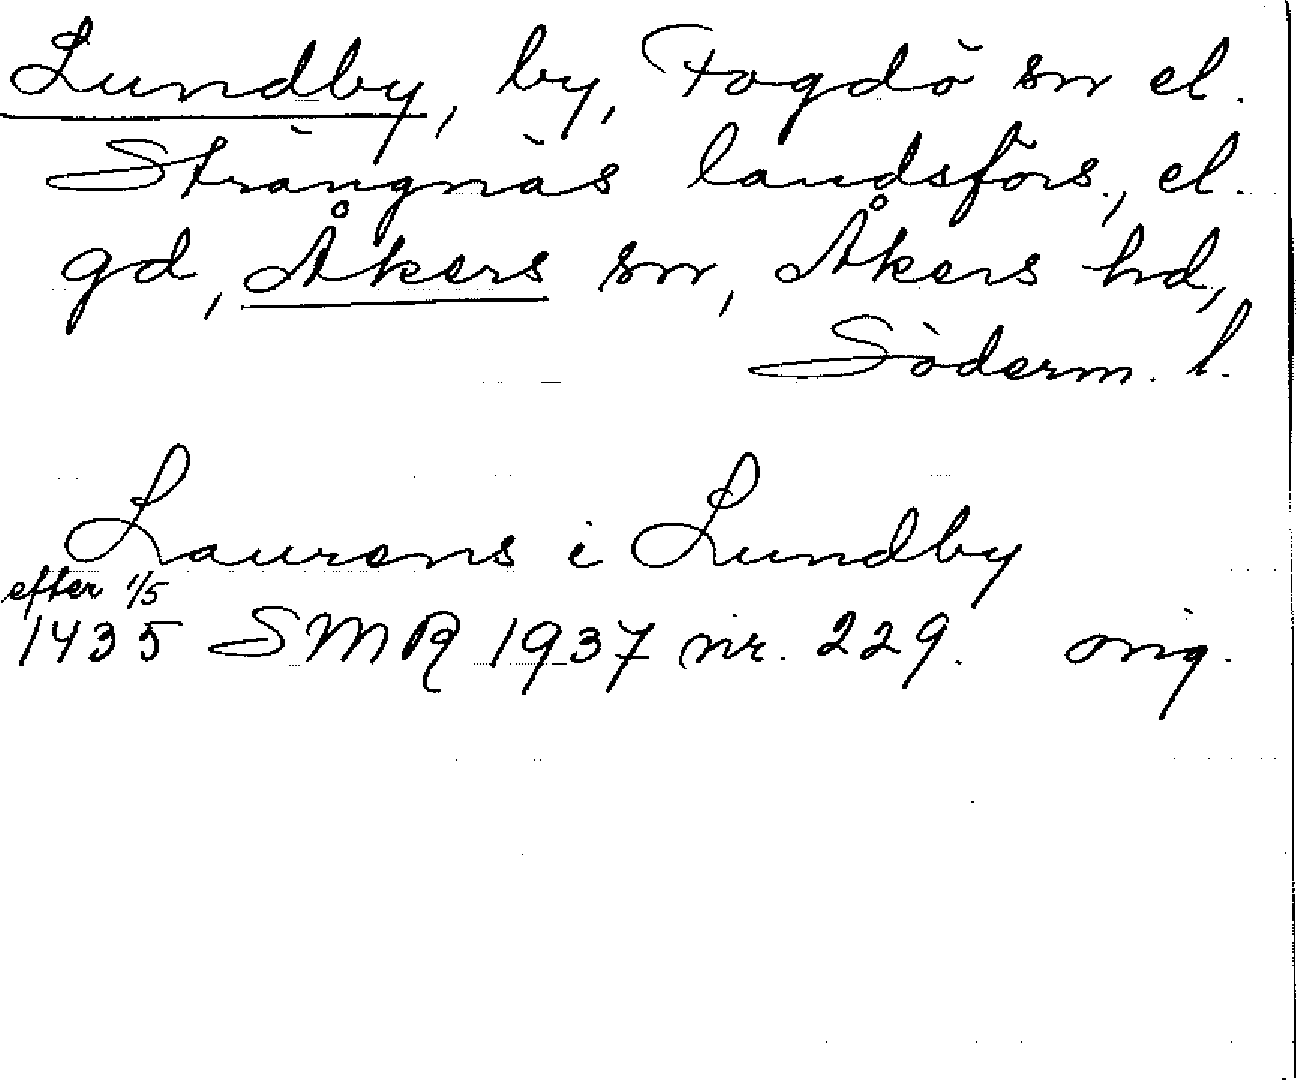 Lundby, by, Fogdö sn el.
Strängnäs landsförs., el.
gd, Åkers sn, Åkers hd,
Söderm. l.
Laurens i Lundby
efter 1/5
1435 SMR 1937 nr. 229. orig.